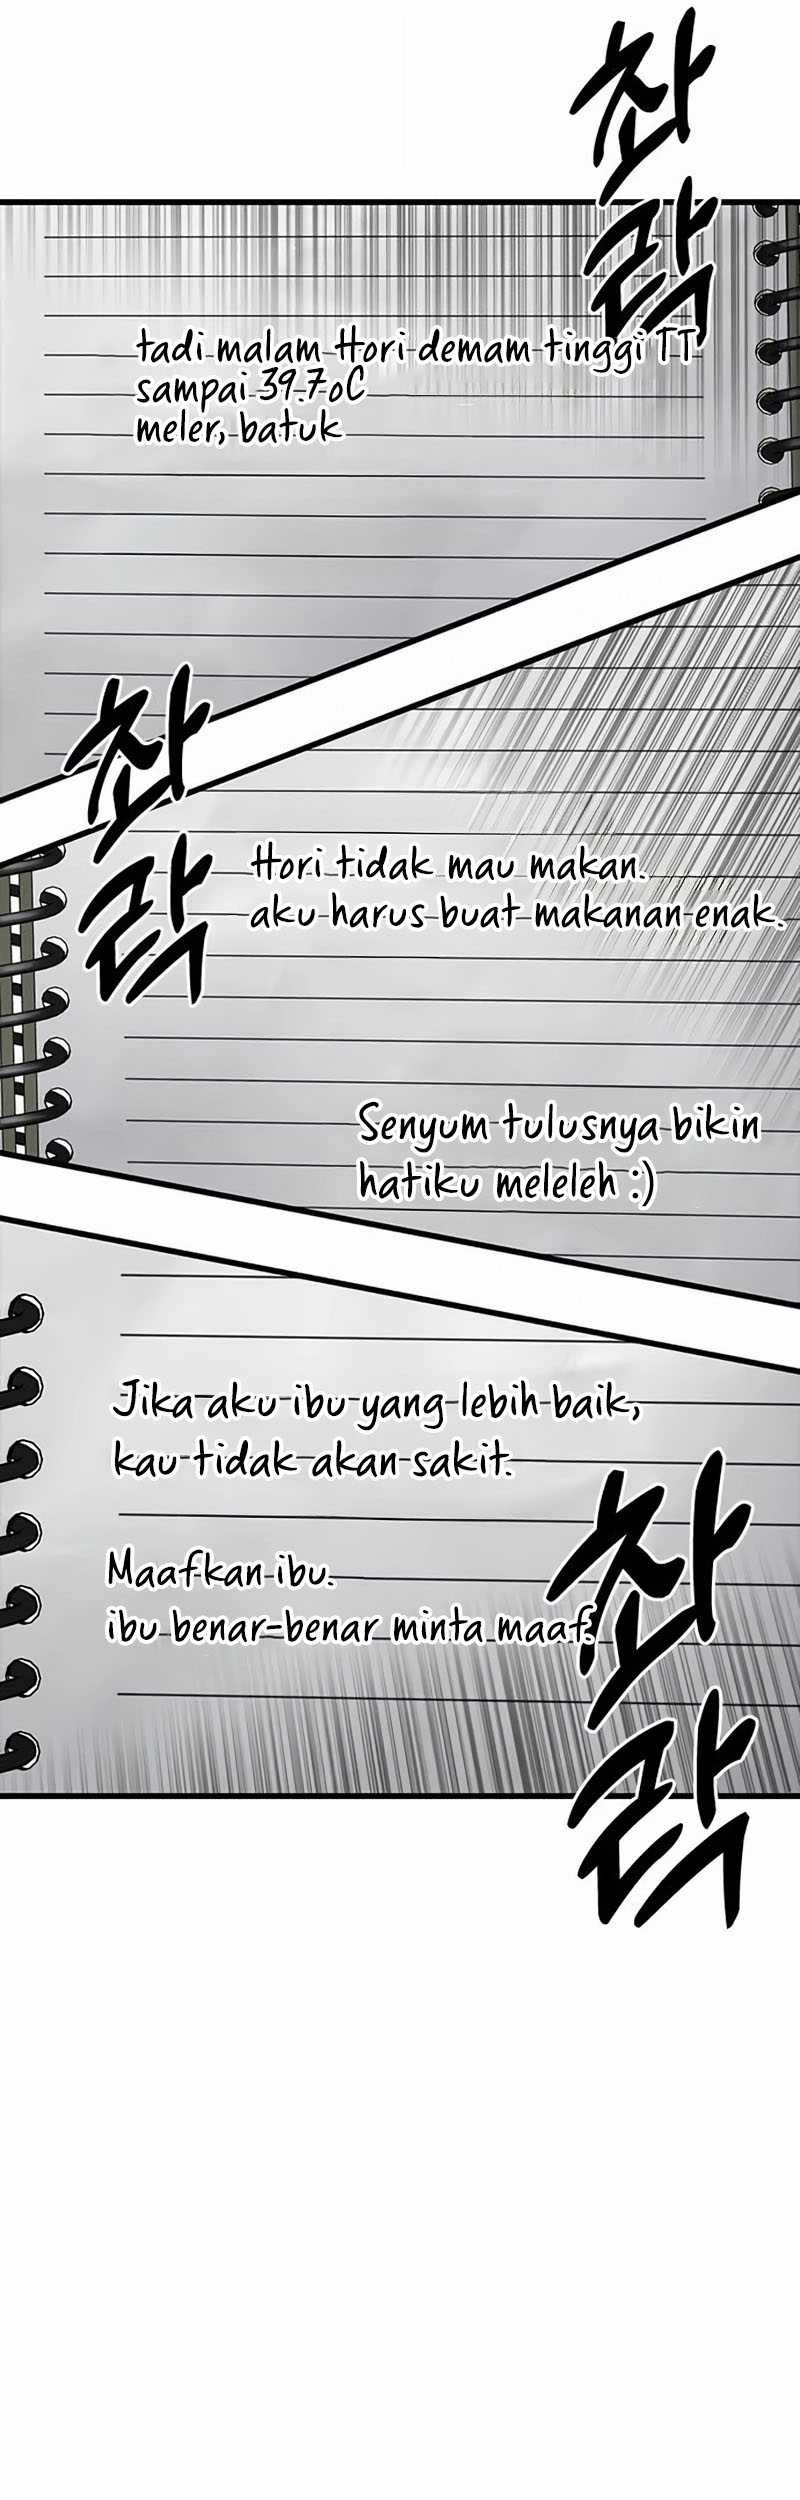 촤
락
tadi malam Hori demam tinggi TT
sampai 39.7oC
meler, batuk
촤
락
Hori tidak mau makan.
aku harus buat makanan enak.
Senyum tulusnya bikin
hatiku meleleh :)
Jika aku ibu yang lebih baik,
kau tidak akan sakit.
Maafkan ibu.
ibu benar-benar minta maaf.
촤
락